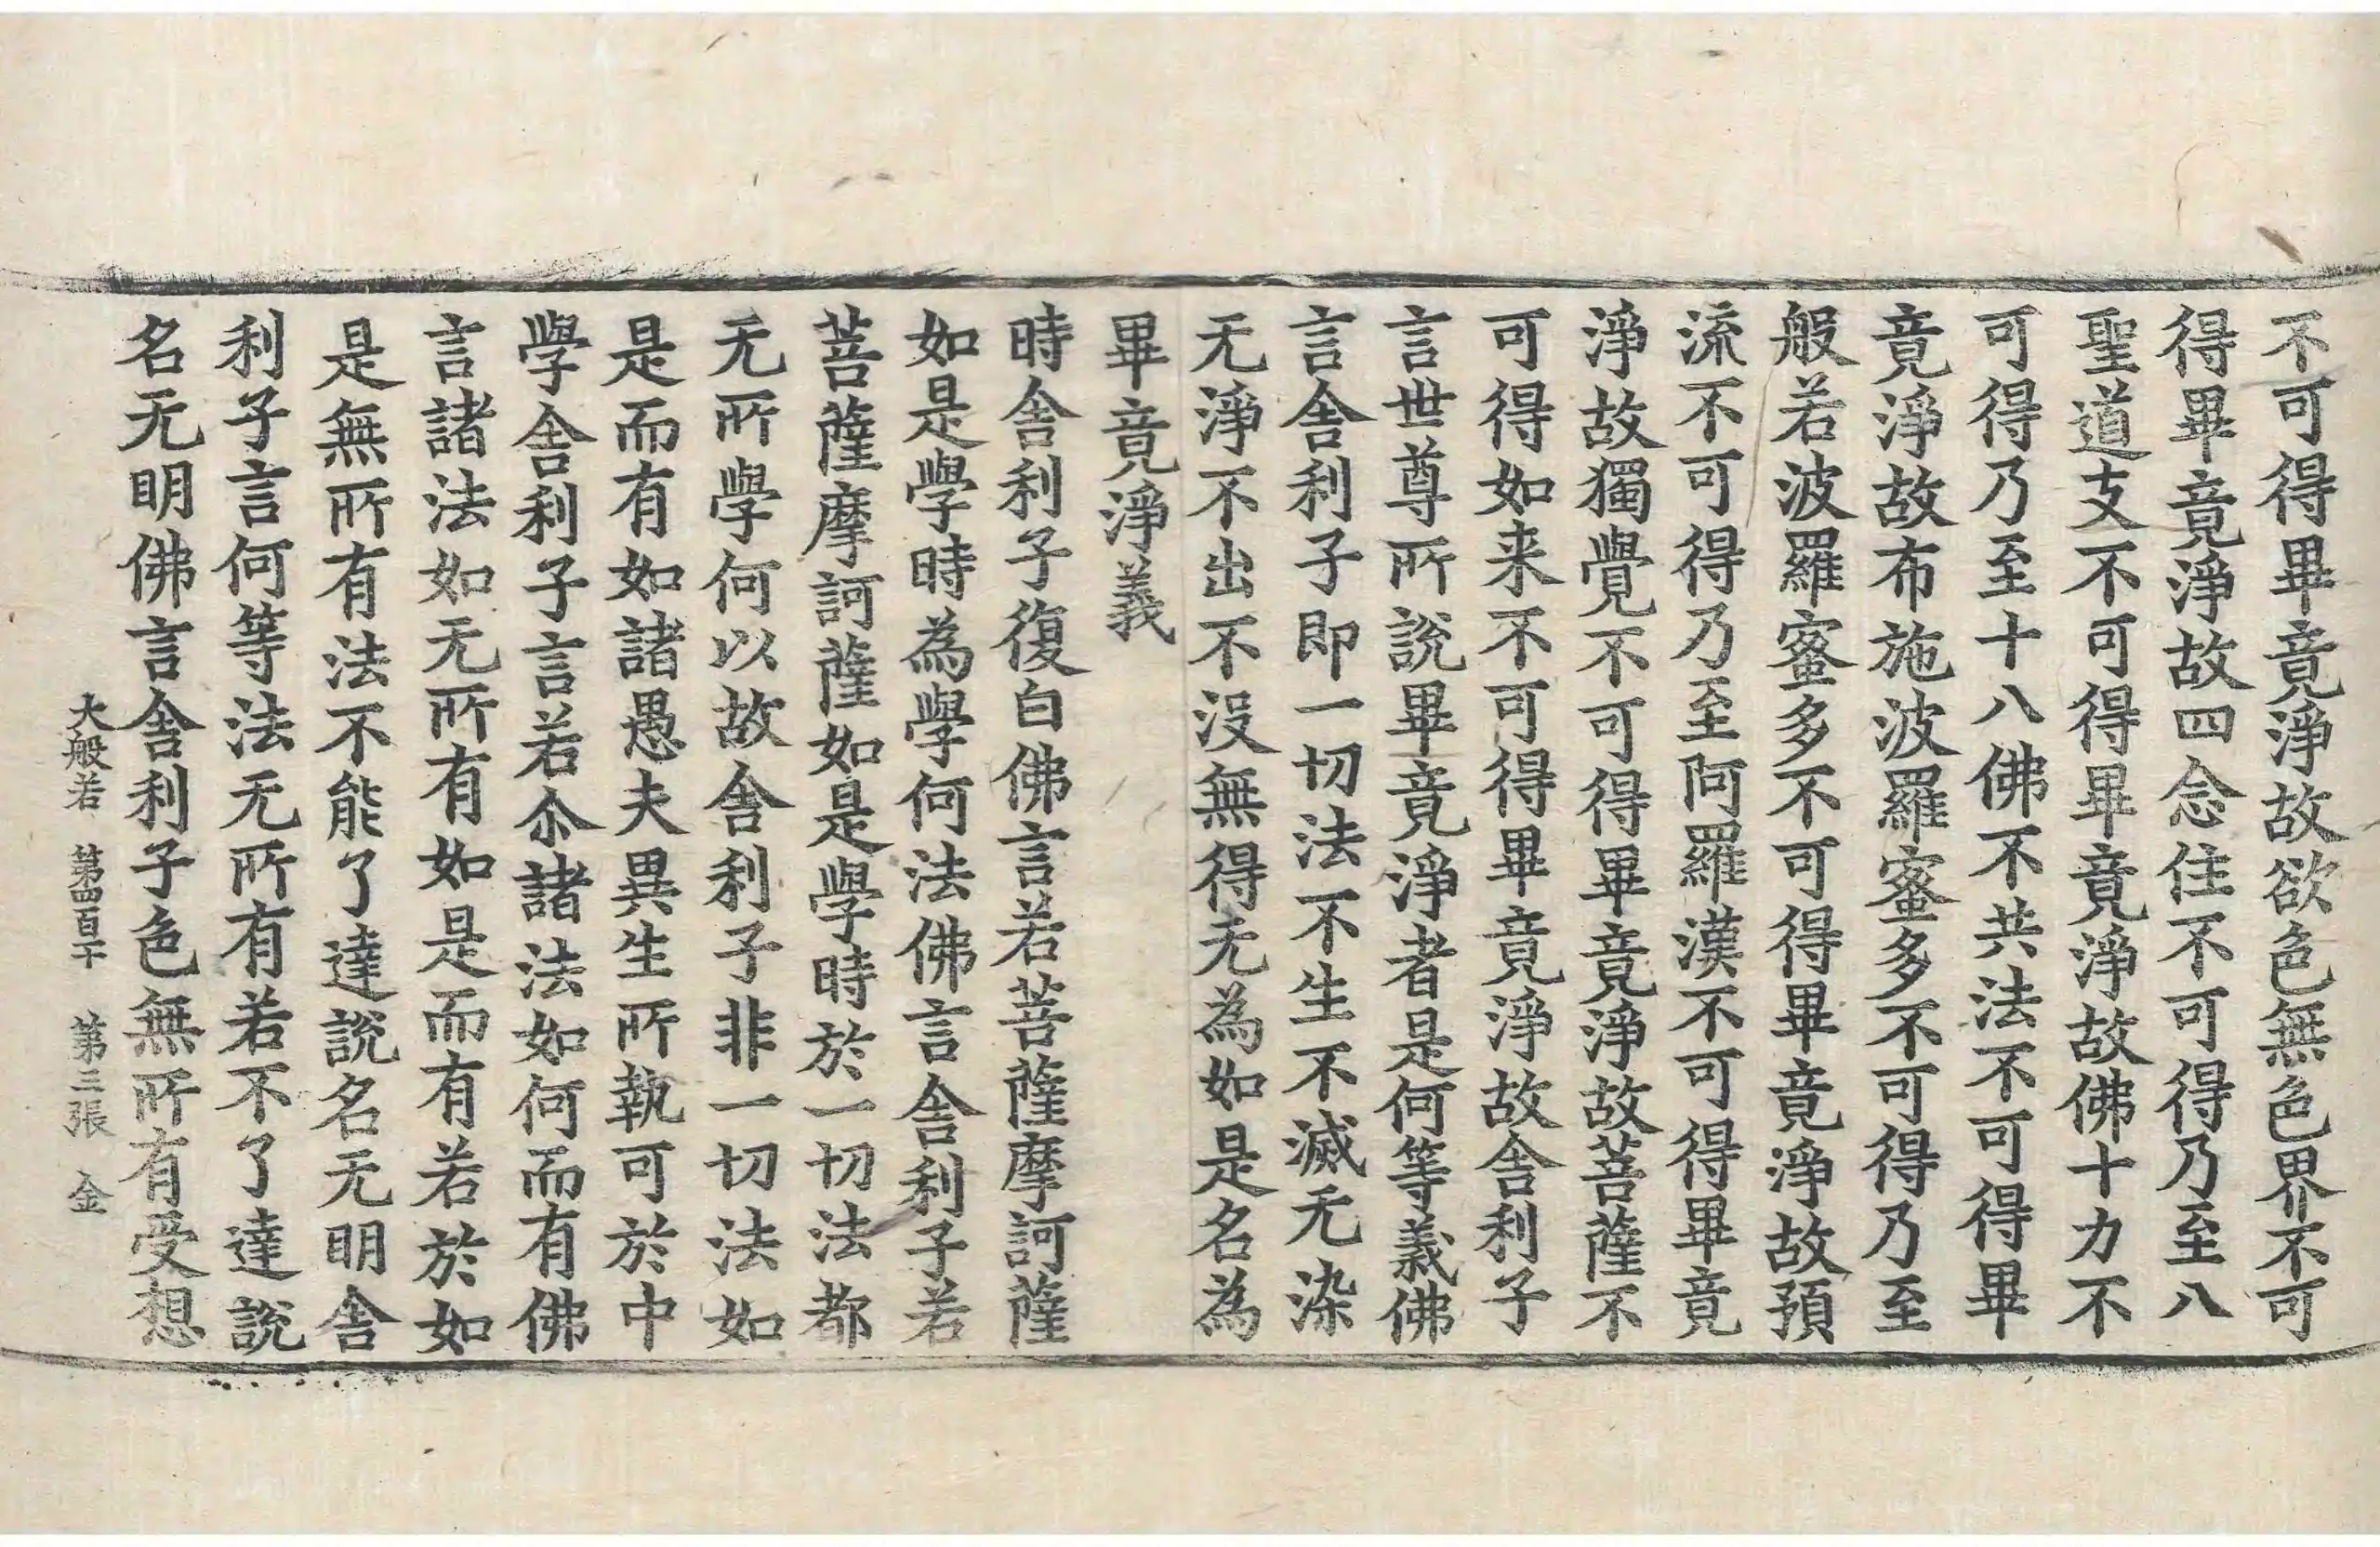 不可得畢竟淨故欲色無色界不可
得畢竟淨故四念住不可得乃至八
聖道支不可得畢竟淨故佛十力不
可得乃至十八佛不共法不可得畢
竟淨故布施波羅蜜多不可得乃至
般若波羅蜜多不可得畢竟淨故預
流不可得乃至阿羅漢不可得畢竟
淨故獨覺不可得畢竟淨故菩薩不
可得如来不可得畢竟淨故舎利子
言世尊所說畢竟淨者是何等義佛
言舎利子即一切法不生不滅无染
无淨不出不没無得无為如是名為
畢竟淨義
時舎利子復白佛言若菩薩摩訶薩
如是學時為學何法佛言舎利子若
菩薩摩訶薩如是學時於一切法都
无所學何以故舎利子非一切法如
是而有如諸愚夫異生所執可於中
學舎利子言若尒諸法如何而有佛
言諸法如无所有如是而有若於如
是無所有法不能了達說名无明舎
利子言何等法无所有若不了達說
名无明佛言舎利子色無所有受想
大般若 第四百十 第三張 金